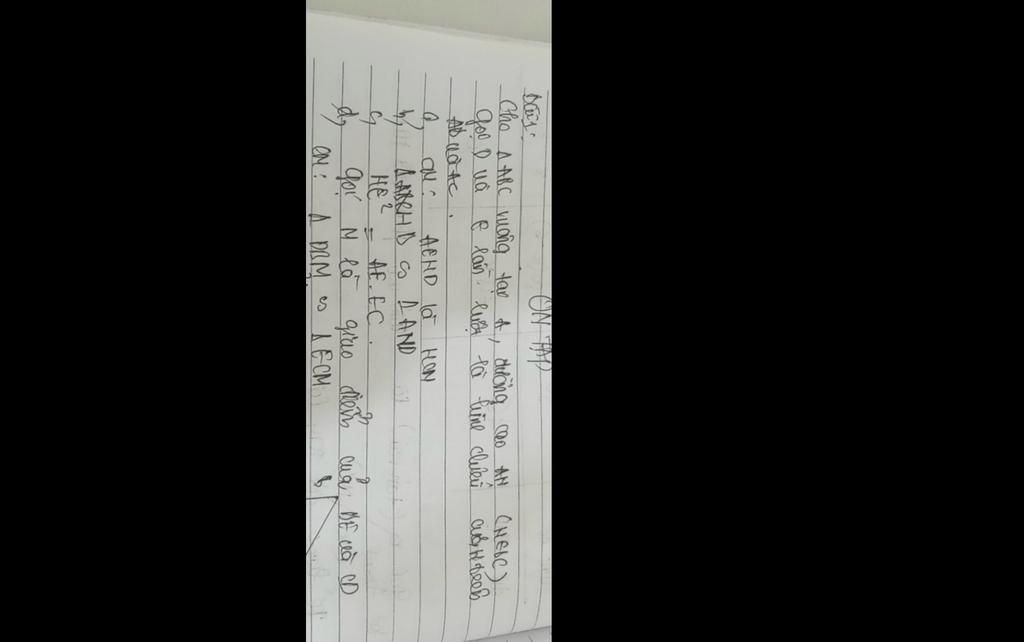 ÔN TẬP
Bài 1:
Cho Δ ABC vuông tại A, đường cao AH (H∈BC)
Gọi D và E lần lượt là hình chiếu của H
AB và AC.
a, CM: AEHD là HCN
b) HD ∽ Δ AHD
c, HE² = AE.EC.
d, Gọi M là giao điểm của BE và CD
CM: Δ DBM ∽ Δ ECM
B